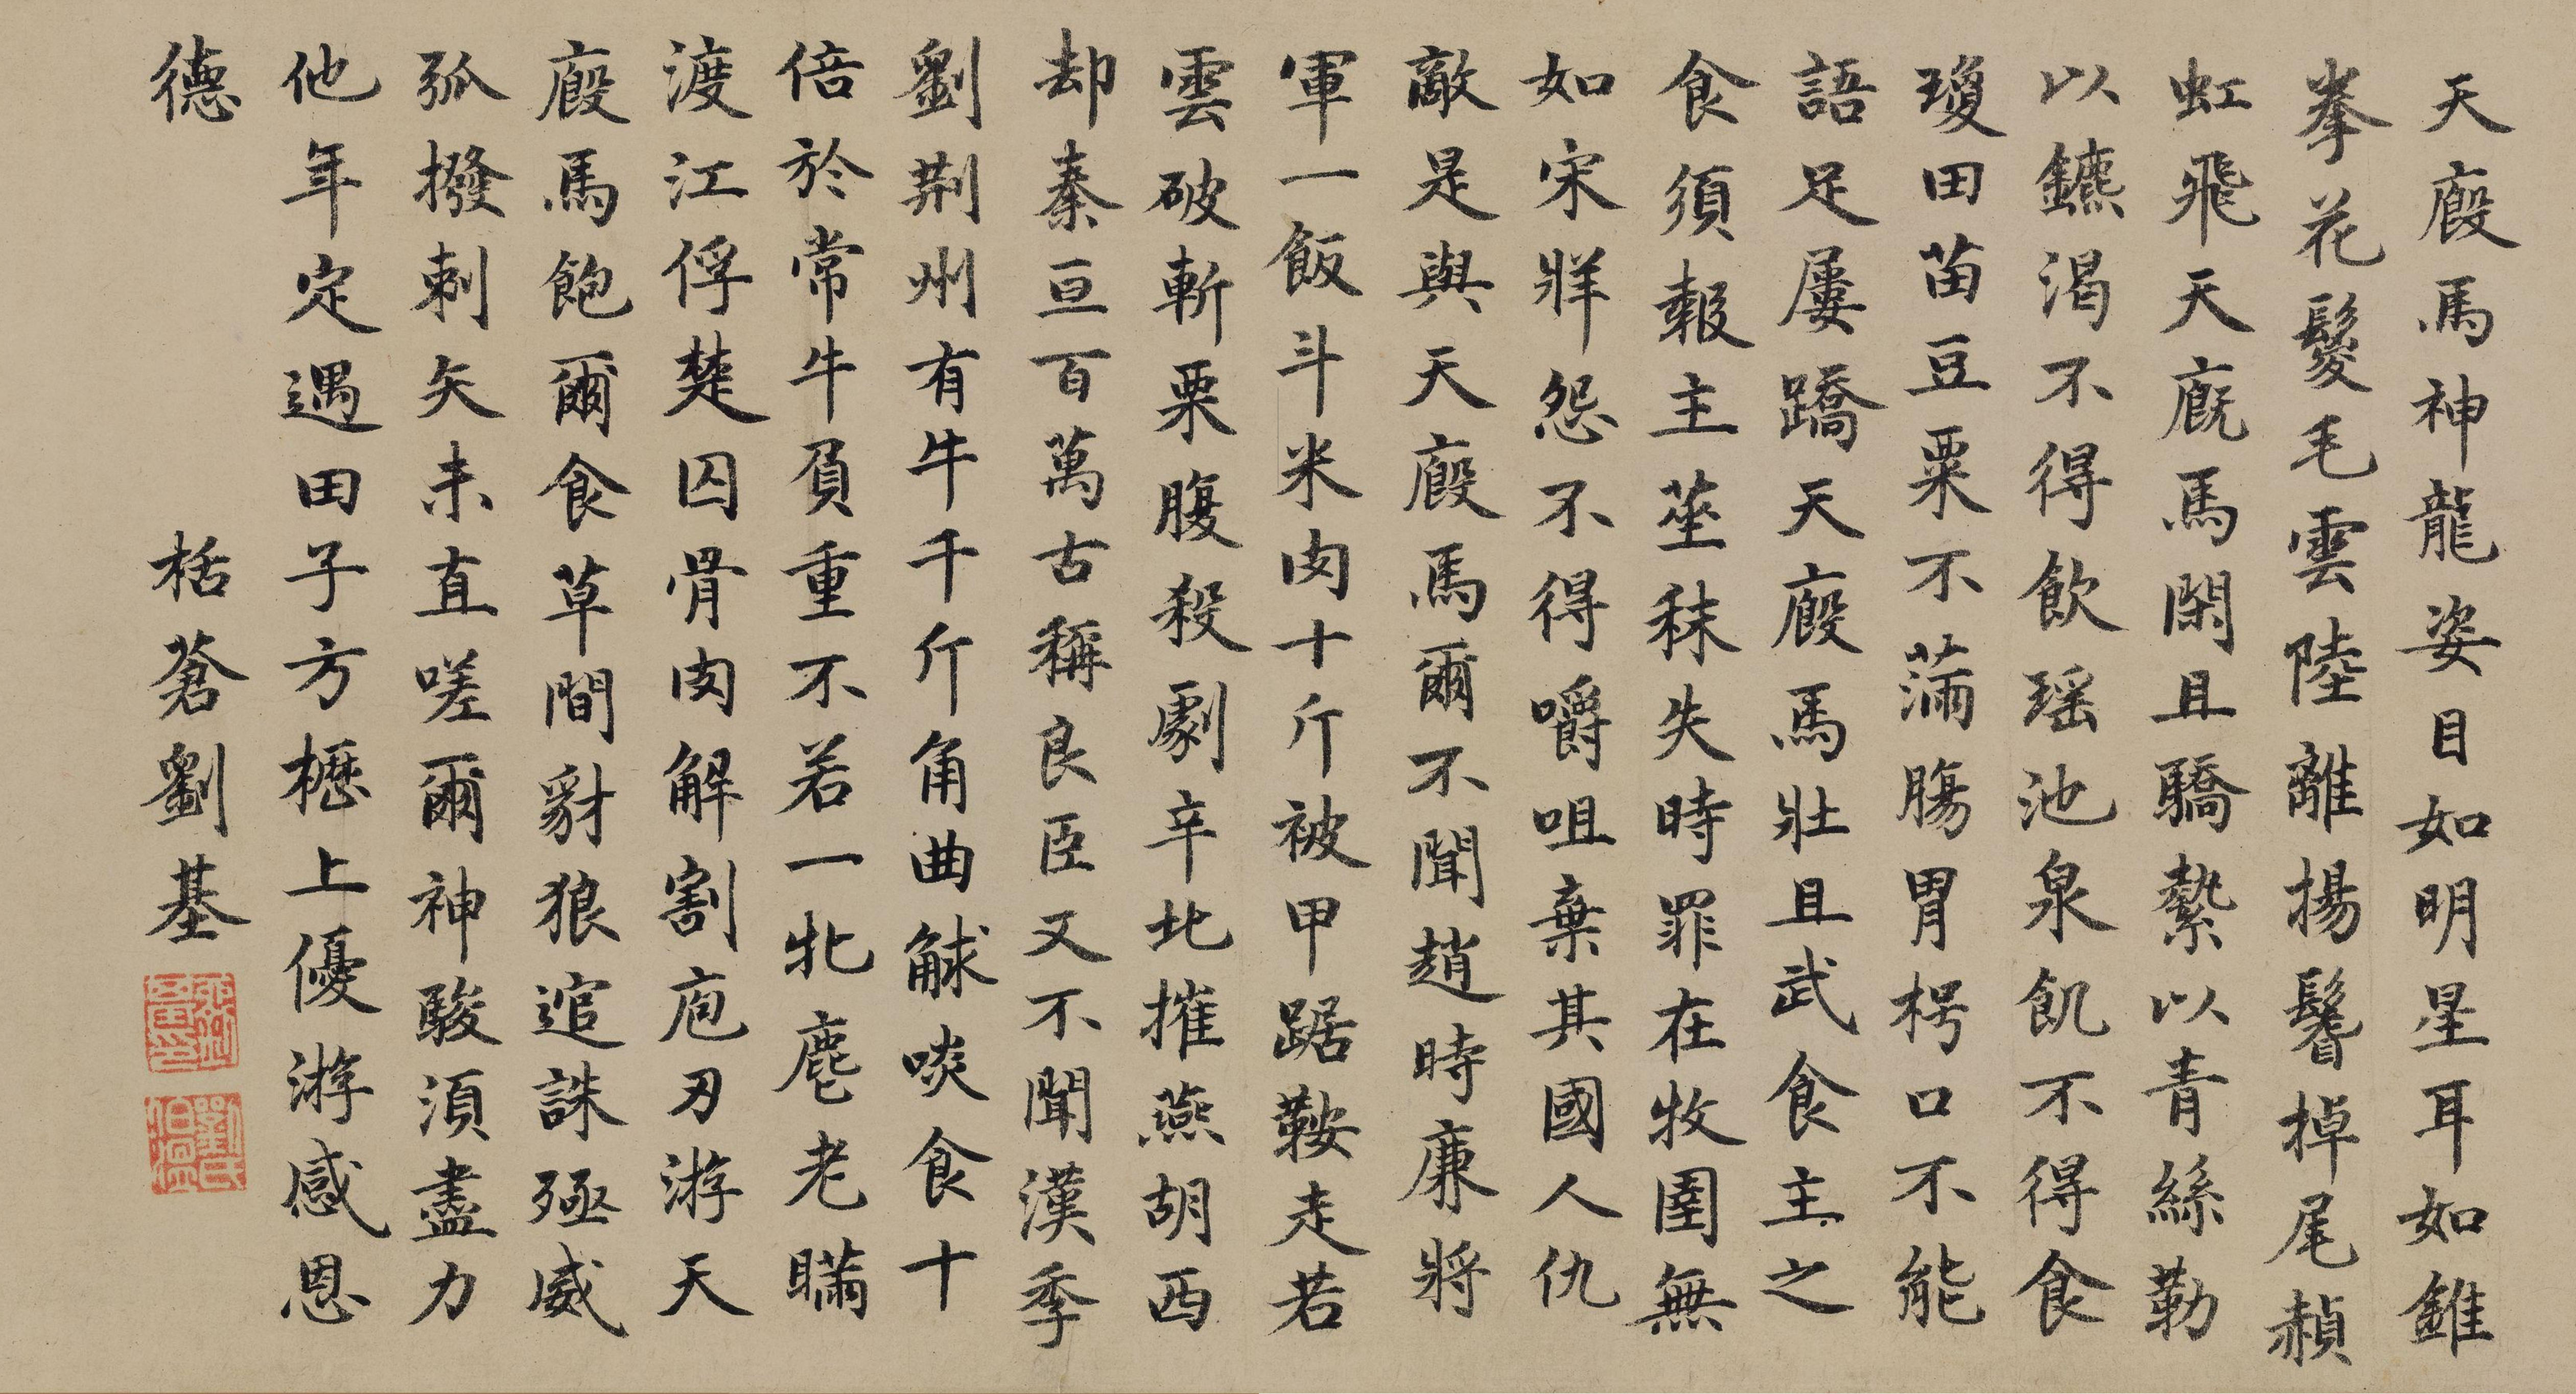 天廄馬神龍姿目如明星耳如錐
拳花鬉毛雲陸離揚鬐掉尾赬
虹飛天廄馬閑且驕縶以青絲勒
以鑣渴不得飲瑶池泉飢不得食
瓊田苗豆粟不滿腸胃枵口不能
語足屢蹻天廄馬壯且武食主之
食須報主莝秣失時罪在牧圉無
如宋牂怨不得嚼咀棄其國人仇
敵是與天廄馬爾不聞趙時廉將
軍一飯斗米肉十斤被甲踞鞍走若
雲破斬栗腹殺劇辛北摧燕胡西
却秦亘百萬古稱良臣又不聞漢季
劉荆州有牛千斤角曲觩啖食十
倍於常牛負重不若一牝麀老瞞
渡江俘楚囚骨肉解割庖刃游天
廄馬飽爾食草間豺狼追誅殛威
弧撥剌矢未直嗟爾神駿須盡力
他年定遇田子方櫪上優游感恩
德
栝蒼劉基